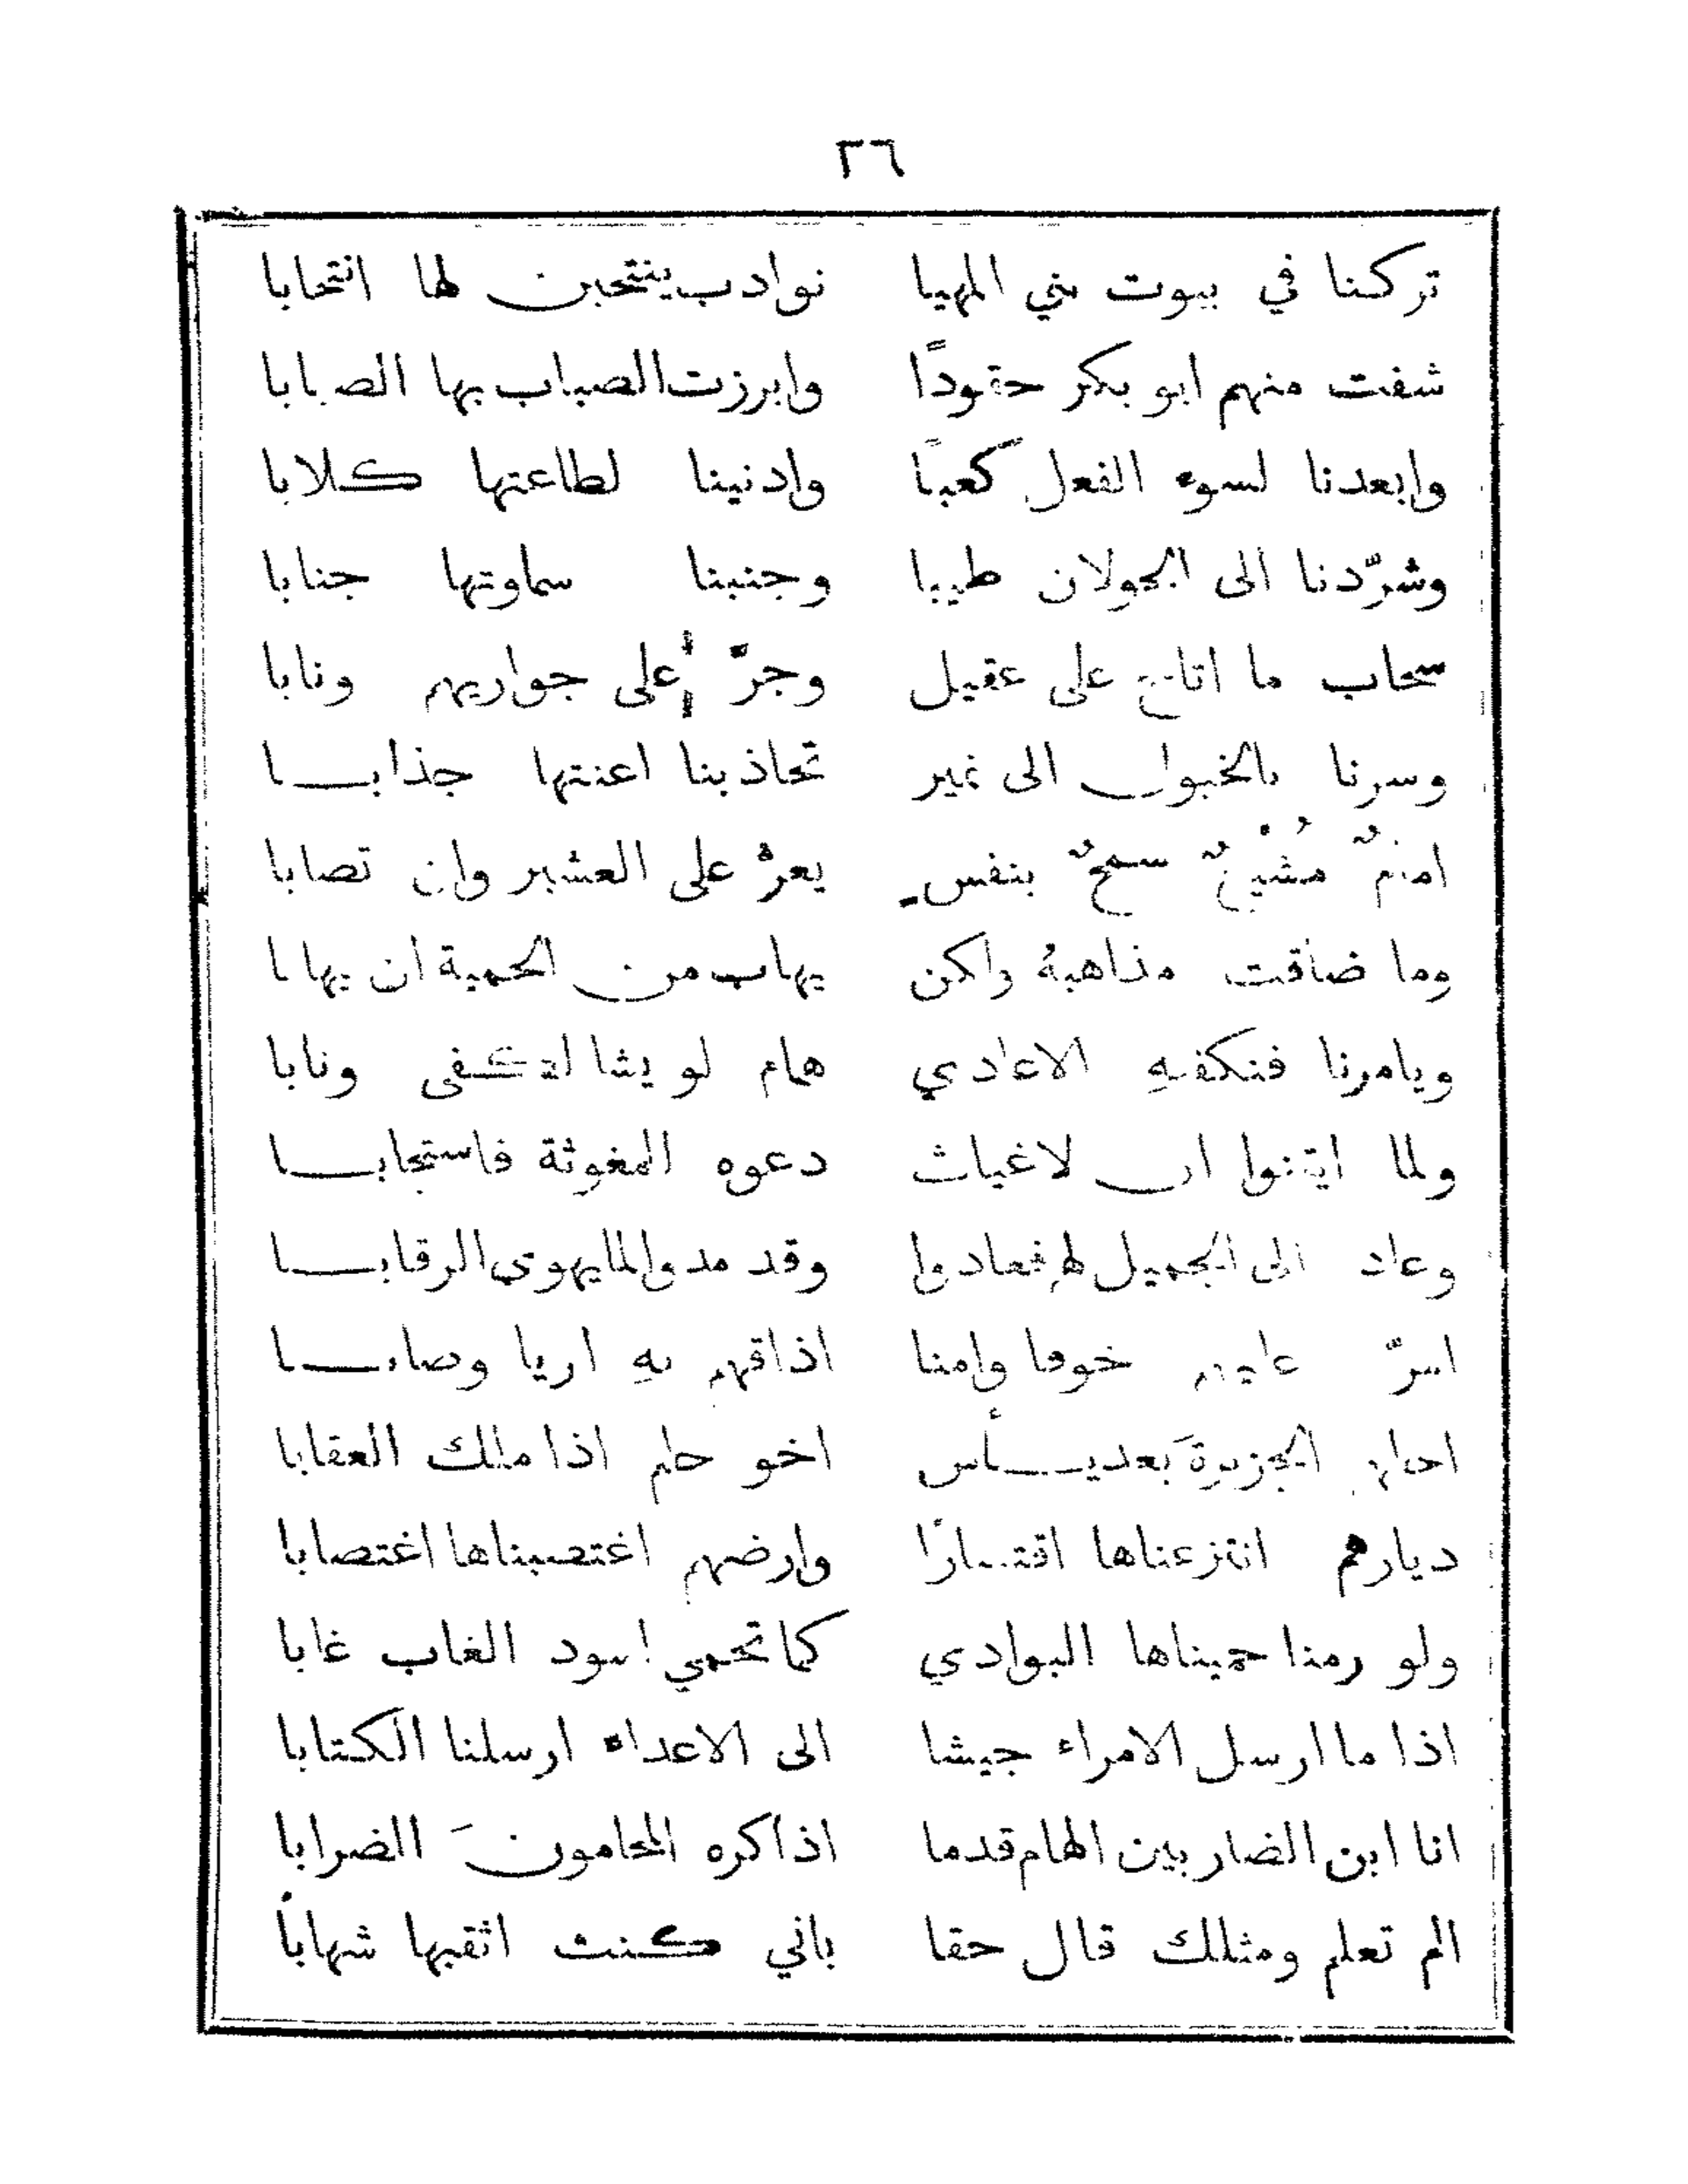 ٢٦
تركنا في بيوت بني المهيا نوادب ينتحبن لها انتحابا
شفت منهم ابو بكر حقودًا وابرزت الصباب بها الصبابا
وابعدنا لسوء الفعل كعبًا وادنينا لطاعتها كلابا
وشرّدنا الى الجولان طيبا وجنبنا سماوتها جنابا
سحاب ما اناخ على عقيل وجرّ على جواريهم ونابا
وسرنا بالخيول الى نمير تجاذبنا اعنتها جذابا
سمحٌ بنفس يعزّ على العشير وان تصابا
وما ضاقت مذاهبهُ ولكن يهاب من الحمية ان يهابا
ويامرنا فنكفيهِ الاعادي همام لو يشا لكفى ونابا
ولما ايقنوا ان لاغياث دعوه المغوثة فاستجابا
وعاد الى الجميل لهم فعادوا وقد مدوا لما يهوى الرقابا
امرّ عليهم خوفا وامنا اذاقهم بهِ اريا وصابا
احلهم الجزيرةَ بعد يأس اخو حلم اذا ملك العقابا
ديارهم انتزعناها اقتسارًا وارضهم اغتصبناها اغتصابا
ولو رمنا حميناها البوادي كما تحمي اسود الغاب غابا
اذا ما ارسل الامراء جيشا الى الاعداء ارسلنا الكتابا
انا ابن الضاربين الهام قدما اذا كره المحامونَ الضرابا
الم تعلم ومثلك قال حقا باني كنت اثقبها شهابًا